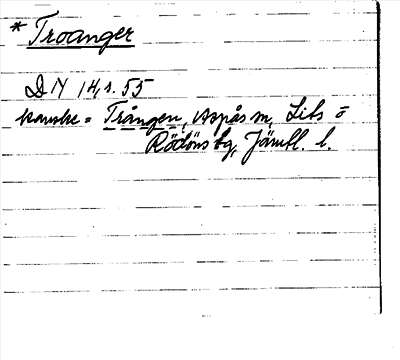 * Troanger
DN 14, s. 55
kanske = Trången, Aspås sn, Lits o
Rödöns tg, Jämtl. l.